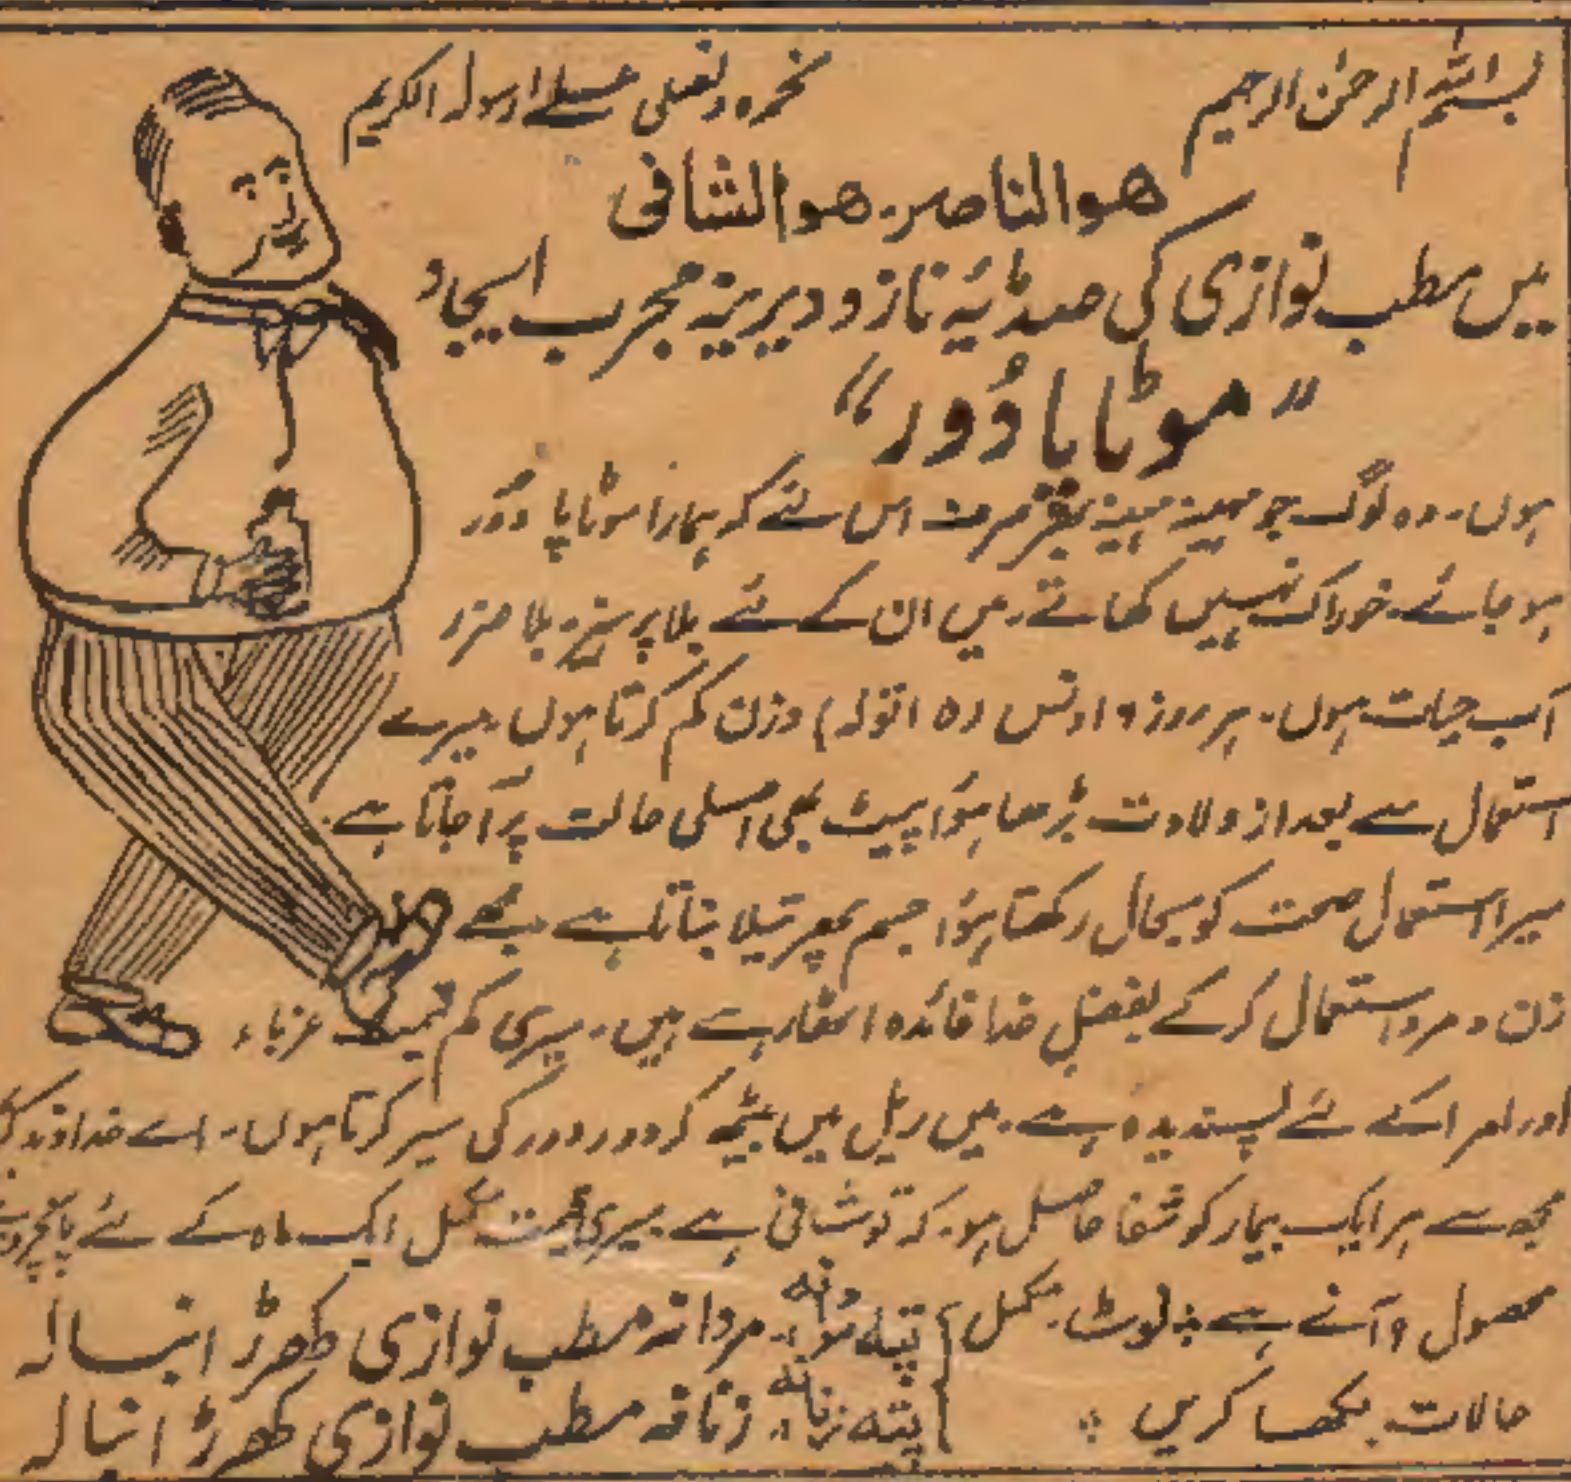 بسم اللہ الرحمٰن الرحیم نحمدہ ونصلی علےٰ رسولہ الکریم
ھوالناصر۔ ھوالشافی
میں مطب نوازی کی صد مایۂ ناز و دیرینہ مجرب ایجاد
"موٹاپا دُور"
ہوں۔ وہ لوگ جو مہینہ مہینہ بھر صرف اس لئے کہ ہمارا موٹاپا دُور
ہو جائے۔ خوراک نہیں کھاتے۔ میں ان کے لئے بلا پرہیز۔ بلا ضرر
آب حیات ہوں۔ ہر روز ۶ اونس (۱۵ تولہ) وزن کم کرتا ہوں۔ میرے
استعمال سے بعد از ولادت بڑھا ہؤا پیٹ بھی اصلی حالت پر آ جاتا ہے۔
میرا استعمال صحت کو بحال رکھتا ہؤا جسم پھرتیلا بناتا ہے مجھے
زن و مرد استعمال کر کے بفضلِ خدا فائدہ اٹھا رہے ہیں۔ میری کم قیمت غرباء
اور امرا کے لئے پسندیدہ ہے۔ میں ریل میں بیٹھ کر دور دور کی سیر کرتا ہوں۔ اے خداوند
مجھ سے ہر ایک بیمار کو شفا حاصل ہو۔ کہ تو شافی ہے۔ میری قیمت مکمل ایک ماہ کے لئے پانچروپے
محصول ۹ آنے ہے ؞ نوٹ۔ مکمل پتہ مردانہ۔ مردانہ مطب نوازی کھرڑ انبالہ
حالات لکھا کریں ؞ پتہ زنانہ۔ زنانہ مطب نوازی کھرڑ انبالہ